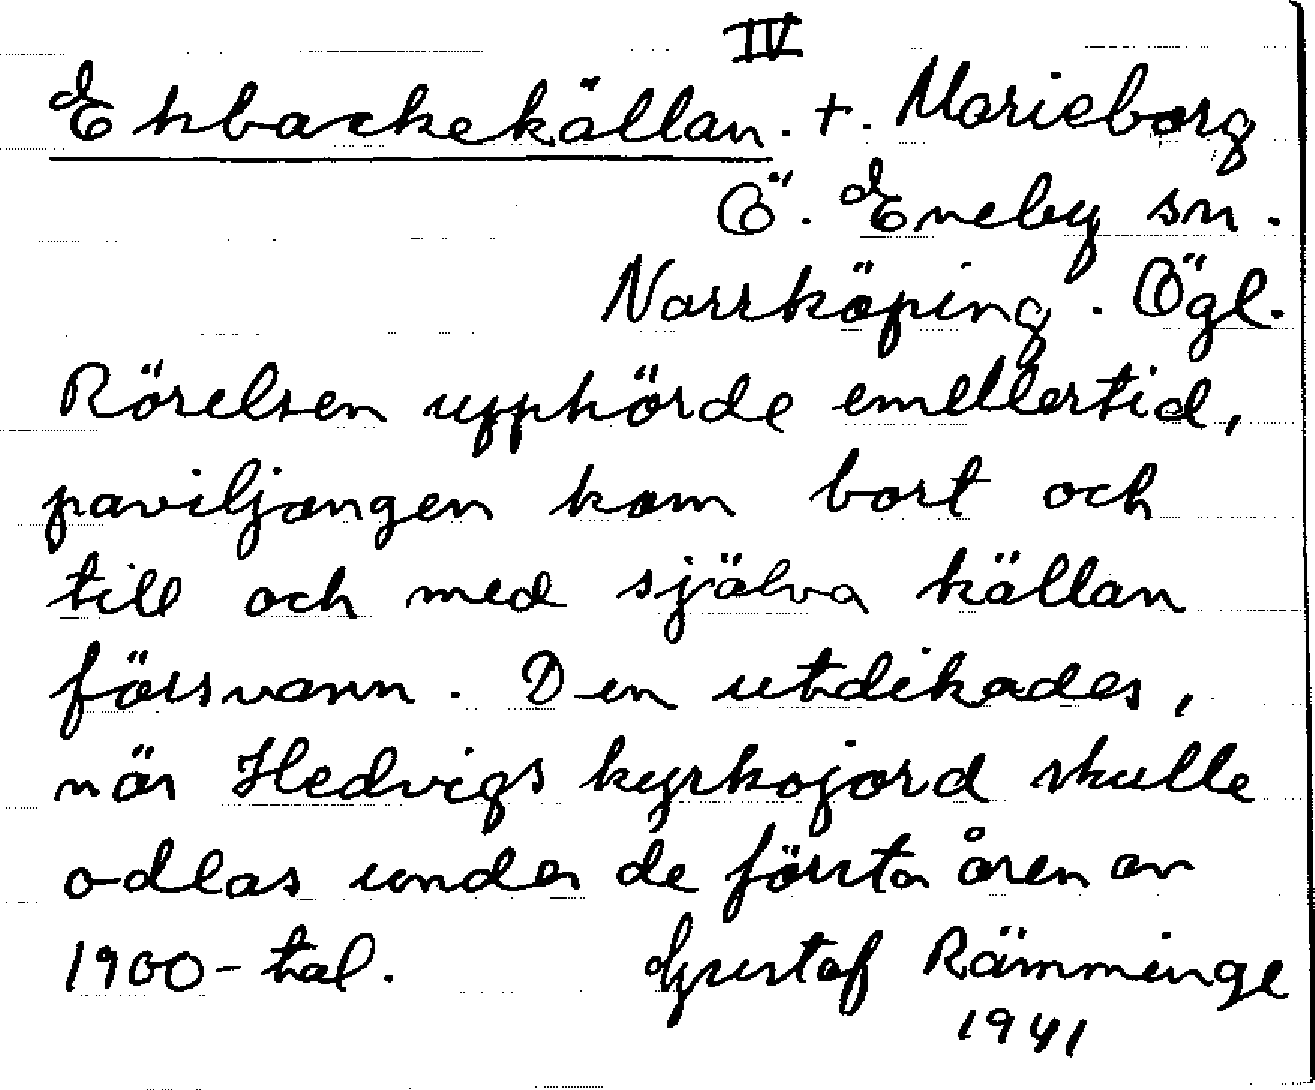 IV
Ekbackekällan. +. Marieborg
Ö. Eneby sn.
Norrköping. Ögl.
Rörelsen upphörde emellertid,
paviljongen kom bort och
till och med själva källan
försvann. Den utdikades,
när Hedvigs kyrkojord skulle
odlas under de första åren av
1900-tal. Gustaf Rämminge
1941